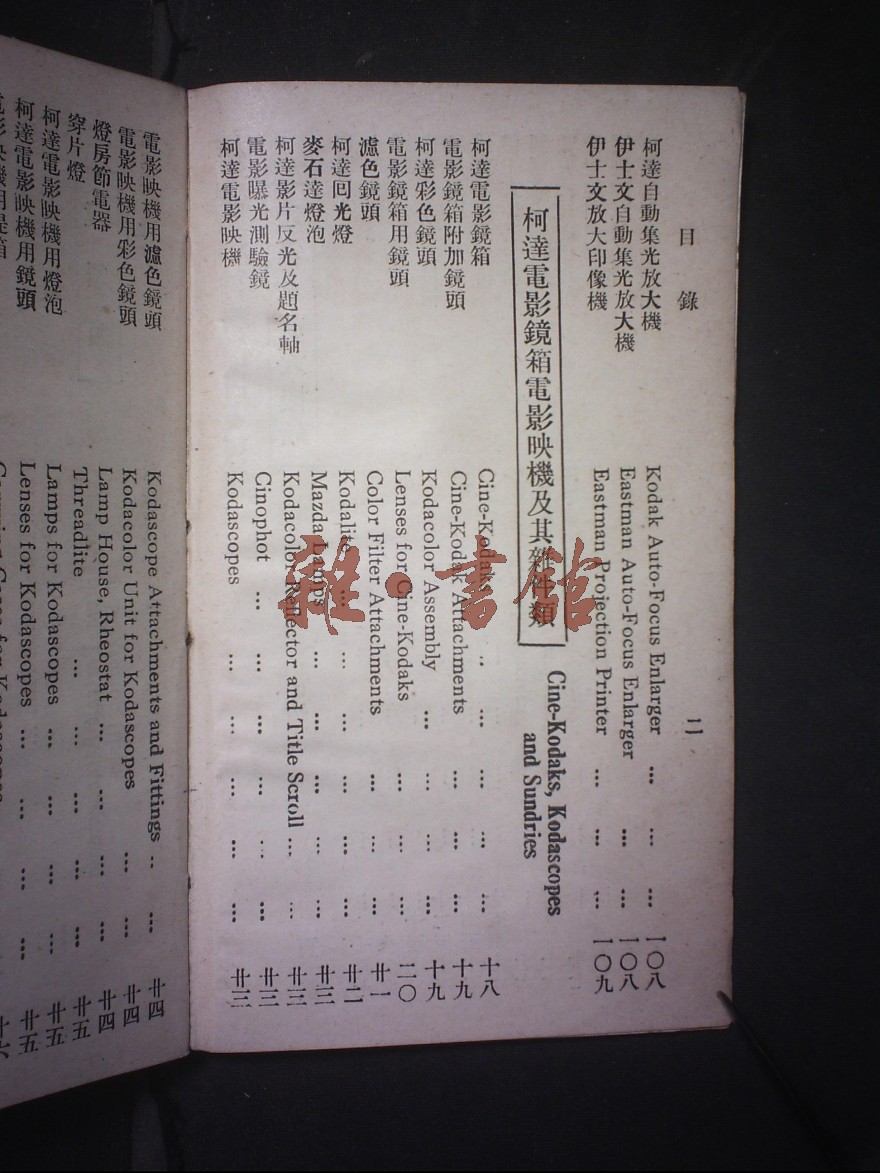 目錄
二
柯達自動集光放大機 Kodak Auto-Focus Enlarger ... ... ... 一〇八
伊士文自動集光放大機 Eastman Auto-Focus Enlarger ... ... 一〇八
伊士文放大印像機 Eastman Projection Printer ... ... ... 一〇九
柯達電影鏡箱電影映機及其雜件類
Cine-Kodaks, Kodascopes
and Sundries
柯達電影鏡箱 Cine-Kodaks .. ... ... ... ... 十八
電影鏡箱附加鏡頭 Cine-Kodak Attachments ... ... ... 十九
柯達彩色鏡頭 Kodacolor Assembly ... ... ... ... 十九
電影鏡箱用鏡頭 Lenses for Cine-Kodaks ... ... ... 二〇
濾色鏡頭 Color Filter Attachments ... ... ... 廿一
柯達囘光燈 Kodalite ... ... ... ... ... 廿二
麥石達燈泡 Mazda Lamps ... ... ... ... ... 廿三
柯達影片反光及題名軸 Kodacolor Reflector and Title Scroll ... ... 廿三
電影曝光測驗鏡 Cinophot ... ... ... ... ... 廿三
柯達電影映機 Kodascopes ... ... ... ... ... 廿三
電影映機用濾色鏡頭 Kodascope Attachments and Fittings .. ... 廿四
電影映機用彩色鏡頭 Kodacolor Unit for Kodascopes ... ... 廿四
燈房節電器 Lamp House, Rheostat ... ... ... ... 廿四
穿片燈 Threadlite ... ... ... ... ... 廿五
柯達電影映機用燈泡 Lamps for Kodascopes ... ... ... ... 廿五
柯達電影映機用鏡頭 Lenses for Kodascopes ... ... ... 廿五
雜·書館